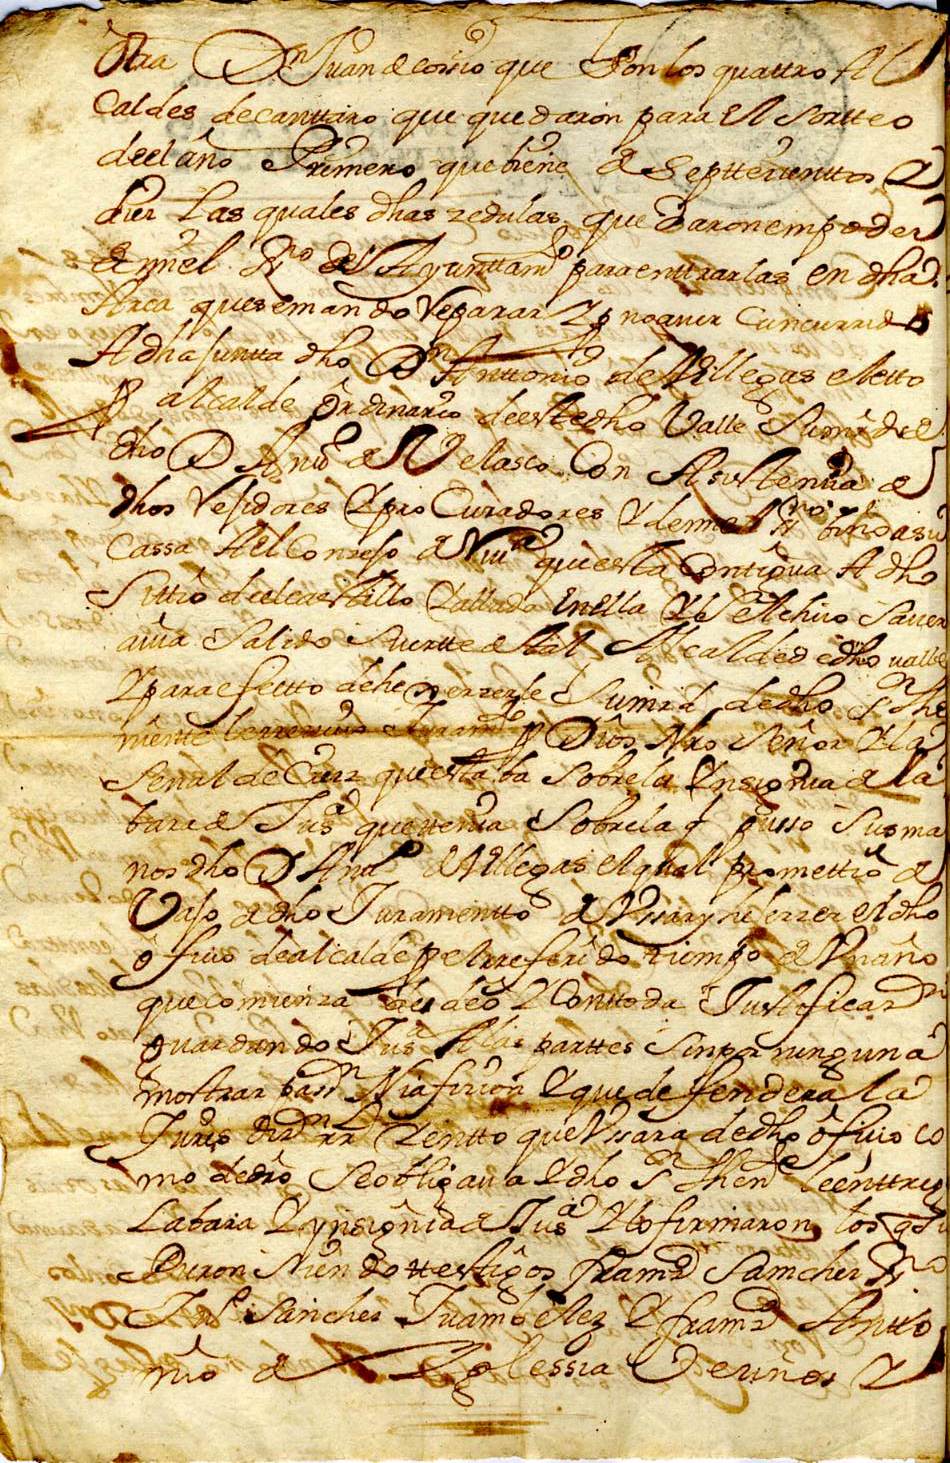 Otra Dn Juan de cossio que son los quattro Al
caldes de canttaro que quedaron para el sortteo
de el año Primero que biene de Septtezienttos y
diez Las quales dhas zedulas quedaron em poder
de mi el ss.no del Ayunttamto para enttrarlas en dha
Arca que se mando Reparar y p no aver Concurrido
A dha juntta dho Dn Anttonio de Villegas eletto
p alcalde ordinario de estte dho Valle Su mrd de el
dho D Antto de Velasco Con Asistenzia de
dhos Rejidores y procuradores y de mi el ss.no bino a su
cassa A el Conzejo de que esta Contigua A dho
Sittio de el castillo y allado en ella y le hizo saver
avia Salido Suertte de tal Alcalde de dho valle
y para efectto de hexerzerle Su mrd de dho Sr The
nientte le rrezivio Juramto p Dios Nro Señor y la
Señal de Cruz que estaba sobre la Ynsignia de la
bara de Jusa que ttenia Sobre la q pusso Sus ma
nos dho D Antto de Villegas el qual promettio de
Vajo de dho Juramentto de Vssar y hexerzer el dho
ofizio de alcalde p el rreferido tiempo de Vn año
que comienza desde oy Con ttoda Justificazon
guardando Jusa A las parttes Sin por ninguna
mostrar passn Ni afizion y que defendera la
Jurisdizn rr y en tto que Vssara de dho ofizio co
mo debio Se obligava y dho Sr Thente le enttrego
La bara y ynsignia de Jusa y lo firmaron los q Su
pieron Siendo testtigos framco Sanchez
Jph Sanchez Juan Velez y framco Antto
nio de Yglessia Vezinos y